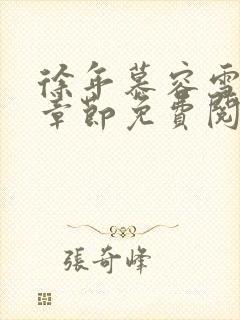 徐年慕容雪
章節免費閱
張奇峰